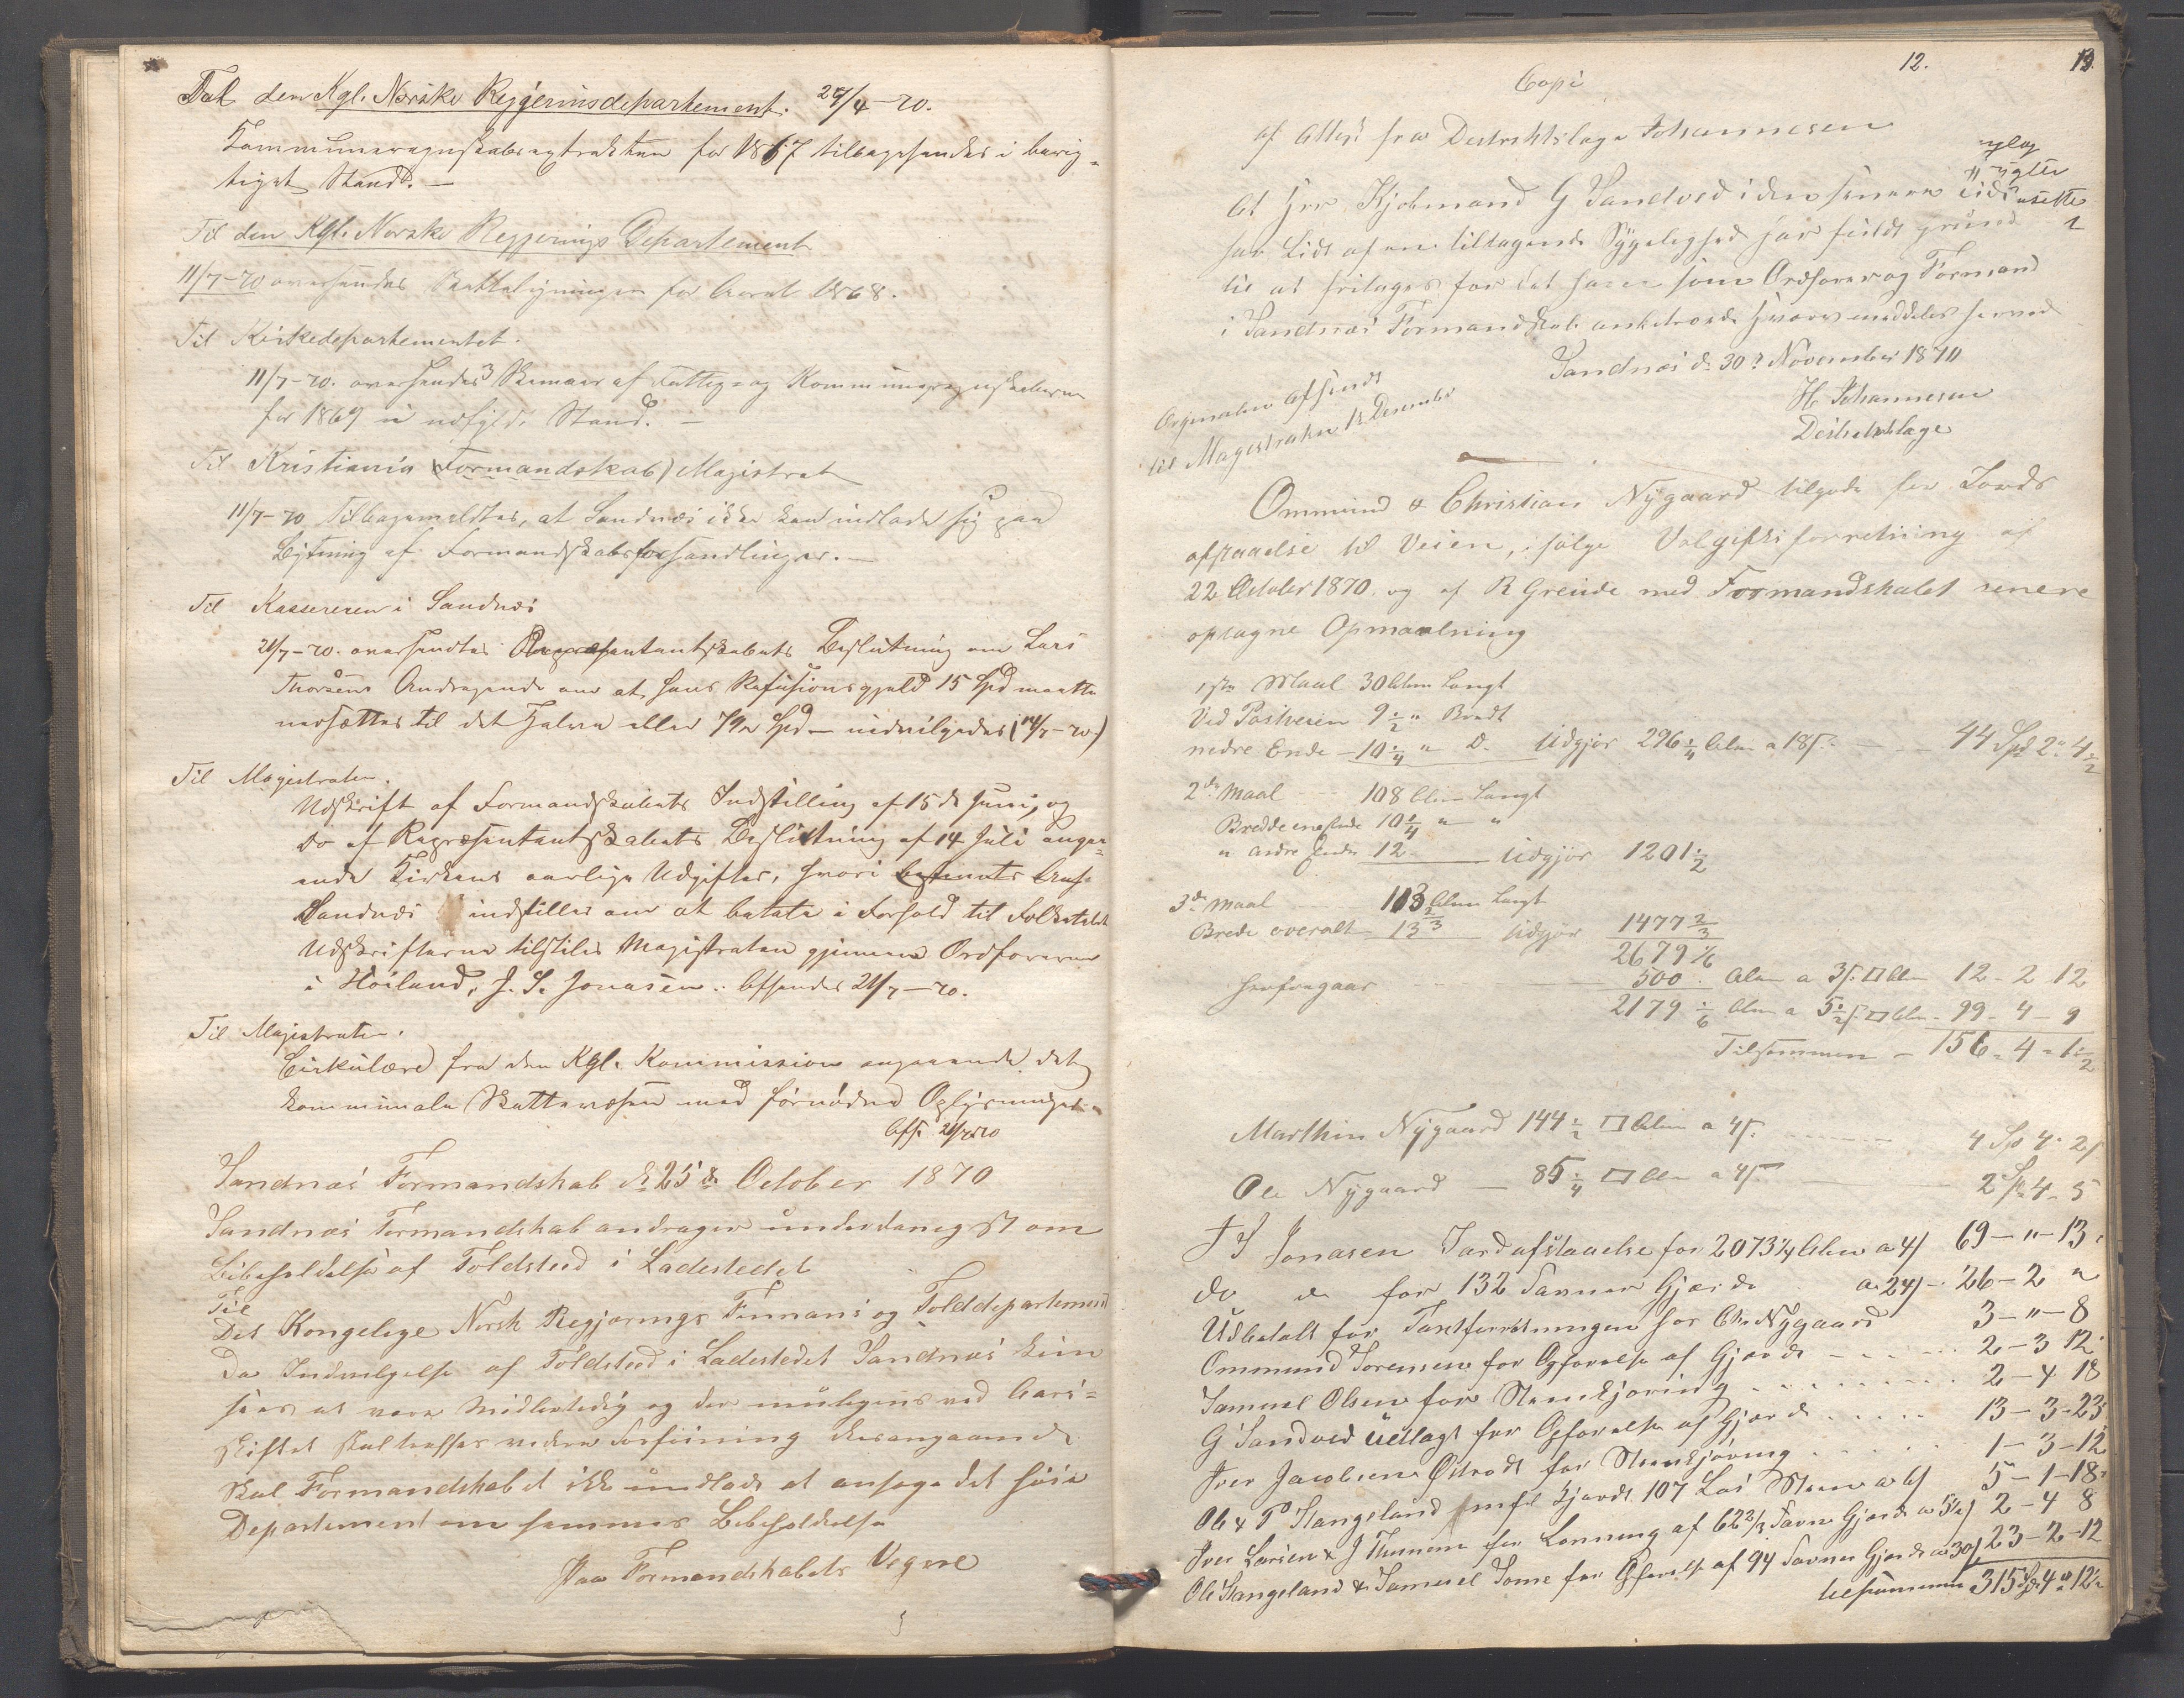 Til den Kgl. Norske Regjerinsdepartement. 29/4-70.
Kommuneregnskabsextrakten for 1867 tilbagesendes i berig-
tiget Stand. —
Til den Kgl. Norske Regjerings Departement
11/7-70 oversendes Skatteligningen for Aaret 1868.
Til Kirkedepartementet.
11/7-70. oversendes 3 Skemaer af Fattig- og Kommuneregnskaberne
for 1869 i udfyldt Stand. —
Til Kristiania (Formandskab) Magistrat
11/7-70 Tilbagemeldtes, at Sandnæs ikke kan indlade sig paa
Bytning af Formandskabsforhandlinger. —
Til Kassereren i Sandnæs
21/7-70. oversendtes Repræsentantskabets Beslutning om Lars
Thorsens Andragende om at hans Refusionsgjæld 15 Spd maatte
nersættes til det Halve eller 7½ Spd — indvilgedes (14/7-70)
Til Magistraten.
Udskrift af Formandskabets Indstilling af 15de Juni, og
do af Repræsentantskabets Beslutning af 14 Juli angaa-
ende Kirkens aarlige Udgifter, hvori
Sandnæs indstilles om at betale i Forhold til Folketallet
Udskrifterne tilstiles Magistraten gjennem Ordføreren
i Høiland, J. S. Jonasen. Afsendt 21/7-70.
Til Magistraten.
Cirkulære fra den Kgl. Kommission angaaende det
kommunale Skattevæsen med fornødne Oplysninger.
Afs. 21/7-70
Sandnæs Formandskab d. 25de October 1870
Sandnæs Formandskab andrager underdanigst om
Bibeholdelse af Toldsted i Ladestedet
Til
Det Kongelige Norsk Regjerings Finans og Tolddepartement
Da Indvilgelse af Toldsted i Ladestedet Sandnæs kun
sees at være Midlertidig og der muligens ved Aars-
skiftet skal træffes videre Forføining desangaaende
skal Formandskabet ikke undlade at ansøge det høie
Departement om sammes Bibeholdelse
Paa Formandskabets Vegne
12. 13.
Copi
af Attest fra Destriktslæge Johannesen
At Hrr Kjøbmand G Sandved i den senere Tid
har Lidt af en tiltagende Sygelighed har fuldt grund
til at fritages for det ham som Ordfører og Formand
i Sandnæs Formandskab anbetroede Hverv meddeles herved
Sandnæs d. 30. November 1870
H. Johannesen
Destriktslæge
Orginalen afsendt
til Magistraten 1/2 Desember
Ommund & Christian Nygaard tilgode for Jords
afstaaelse til Veien, ifølge Volgiftsforretning af
22 October 1870. og af R Greude med Formandskabet senere
optagne Opmaalning
1ste Maal 30 Alen Langt
Ved Postveien 9½ " Bredt
nedre Ende — 10¼ " D. Udgjør 296¼ Alen a 18ſ. — 44 Spd 2 " 4½
2det Maal 108 Alen Langt
Bredde ene Ende 10¼ " "
" andre Ende 12 Udgjør 1201½
3de Maal 108 Alen Langt
Brede overalt 13⅔ Udgjør 1477⅔
2679 1/6
herfragaar 500 Alen a 3ſ. □ Alen 12 - 2 12
2179 1/6 Alen a 5½ſ. □ Alen - 99 - 4 - 9
Tilsammen - 156 - 4 - 1½
Marthin Nygaard 144½ □ Alen a 4ſ. 4 Sp 4 - 2ſ
Ole Nygaard — 85¼ □ Alen a 4ſ. 2 Sp 4 - 5
J S Jonasen Jordafstaaelse for 2073¼ Alen a 4ſ 69 - " - 13
do do for 132 Favner Gjærde a 24ſ - 26 - 2 "
Udbetalt for Taxtforretningen hos Chr Nygaard 3 - " - 8
Ommund Sørensen for Opførelse af Gjærde 2 - 3 12
Samuel Olsen for Stenkjøring 2 - 4 18
G Sandved Udlagt for Opførelse af Gjærde 13 - 3 - 23
Iver Jacobsen for Stenkjøring 1 - 3 - 12
Ole & P Stangeland kjørdt 107 Las Steen a 6ſ 5 - 1 - 18
Iver Larsen & J for Lønning af 62⅔ Favne Gjærde a 5ſ 2 - 4 8
Ole Stangeland & Samuel for Opførelse af 94 Favner Gjærde a 30ſ 23 - 2 - 12
tilsammen 315 Spd 4 " 12½